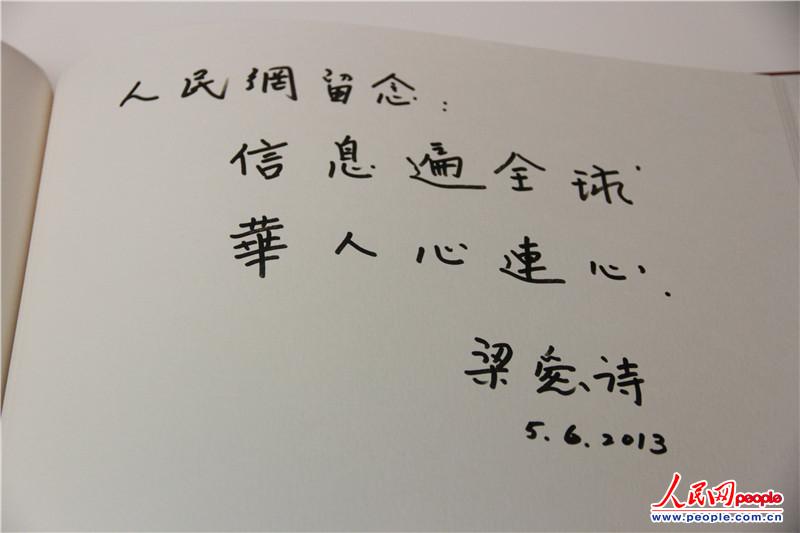 人民網留念:
信息遍全球
華人心連心.
梁愛詩
5.6.2013
人民网people
www.people.com.cn